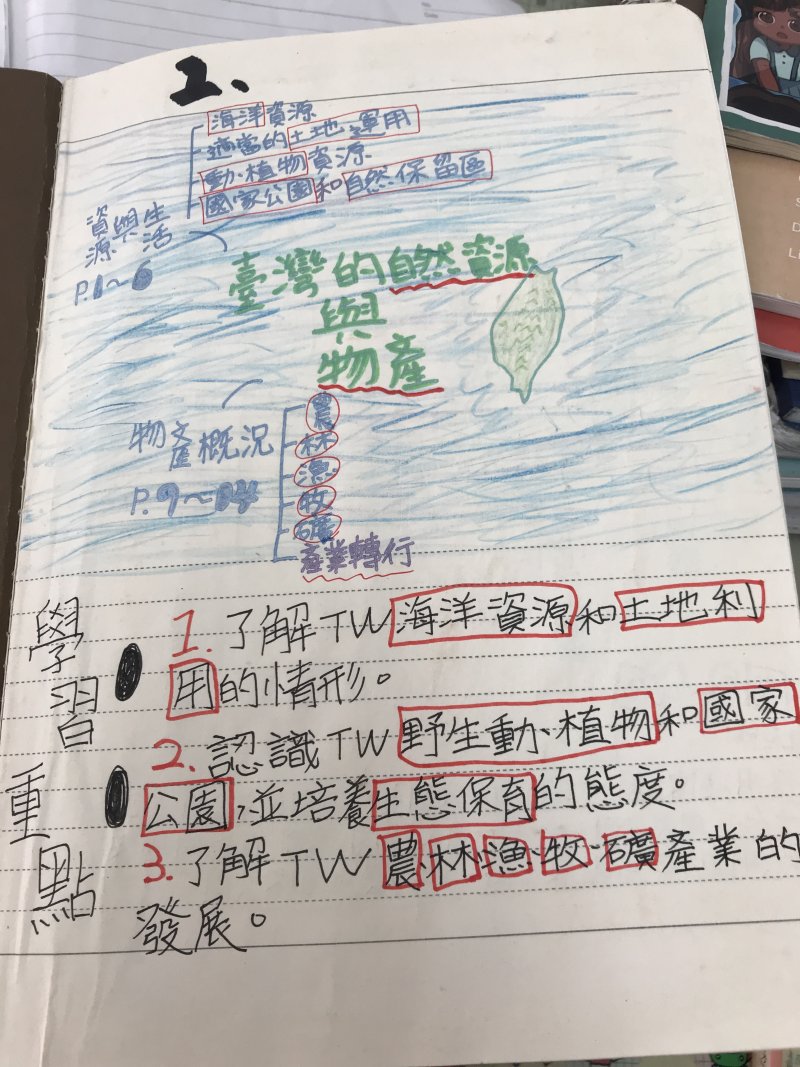 2、
海洋資源
適當的土地運用
動、植物資源
國家公園和自然保留區
資源與生活
P.1~6
臺灣的自然資源
與
物產
物產概況
P.9~14
農
林
漁
牧
礦
產業轉行
學習重點
1.了解TW海洋資源和土地利
用的情形。
2.認識TW野生動、植物和國家
公園,並培養生態保育的態度。
3.了解TW農.林.漁.牧.礦產業的
發展。